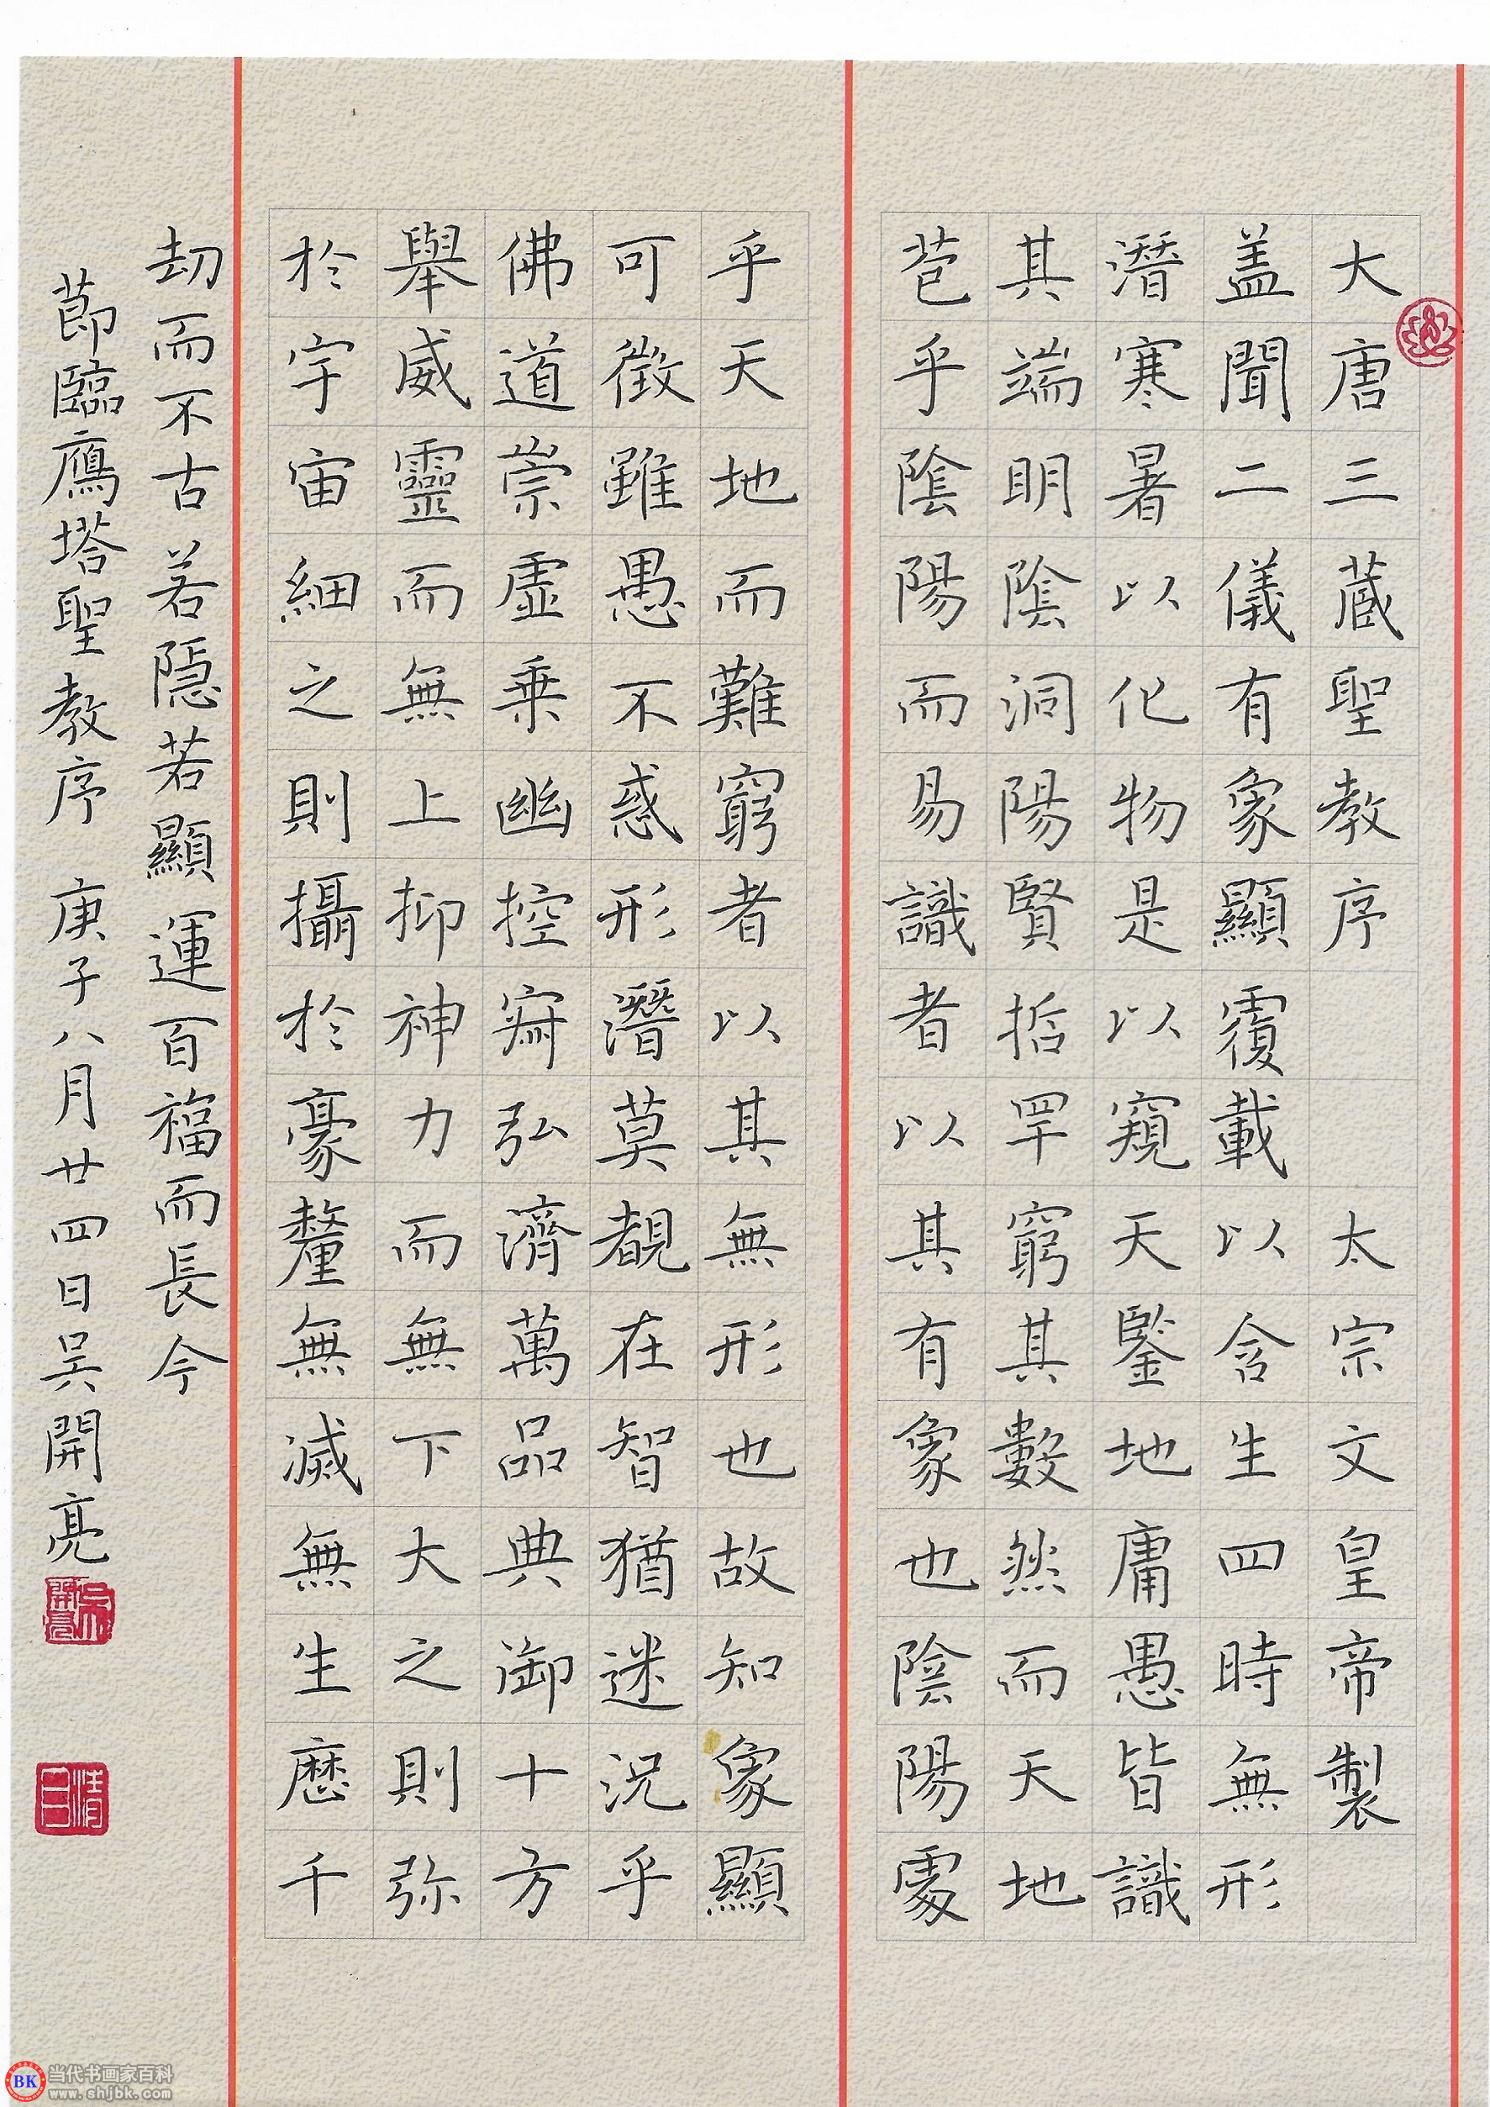 大唐三蔵聖教序 太宗文皇帝製
盖聞二儀有象顯覆載以含生四時無形
潛寒暑以化物是以窺天鑒地庸愚皆識
其端明陰洞陽賢哲罕窮其數然而天地
苞乎陰陽而易識者以其有象也陰陽處
乎天地而難窮者以其無形也故知象顯
可徵雖愚不惑形潛莫覩在智猶迷況乎
佛道崇虛乗幽控寂弘濟萬品典御十方
舉威靈而無上抑神力而無下大之則弥
於宇宙細之則攝於豪釐無滅無生歷千
劫而不古若隱若顯運百福而長今
節臨鴈塔聖教序 庚子八月廿四日吴開亮
吴開亮
当代书画家百科
BK
www.shjbk.com